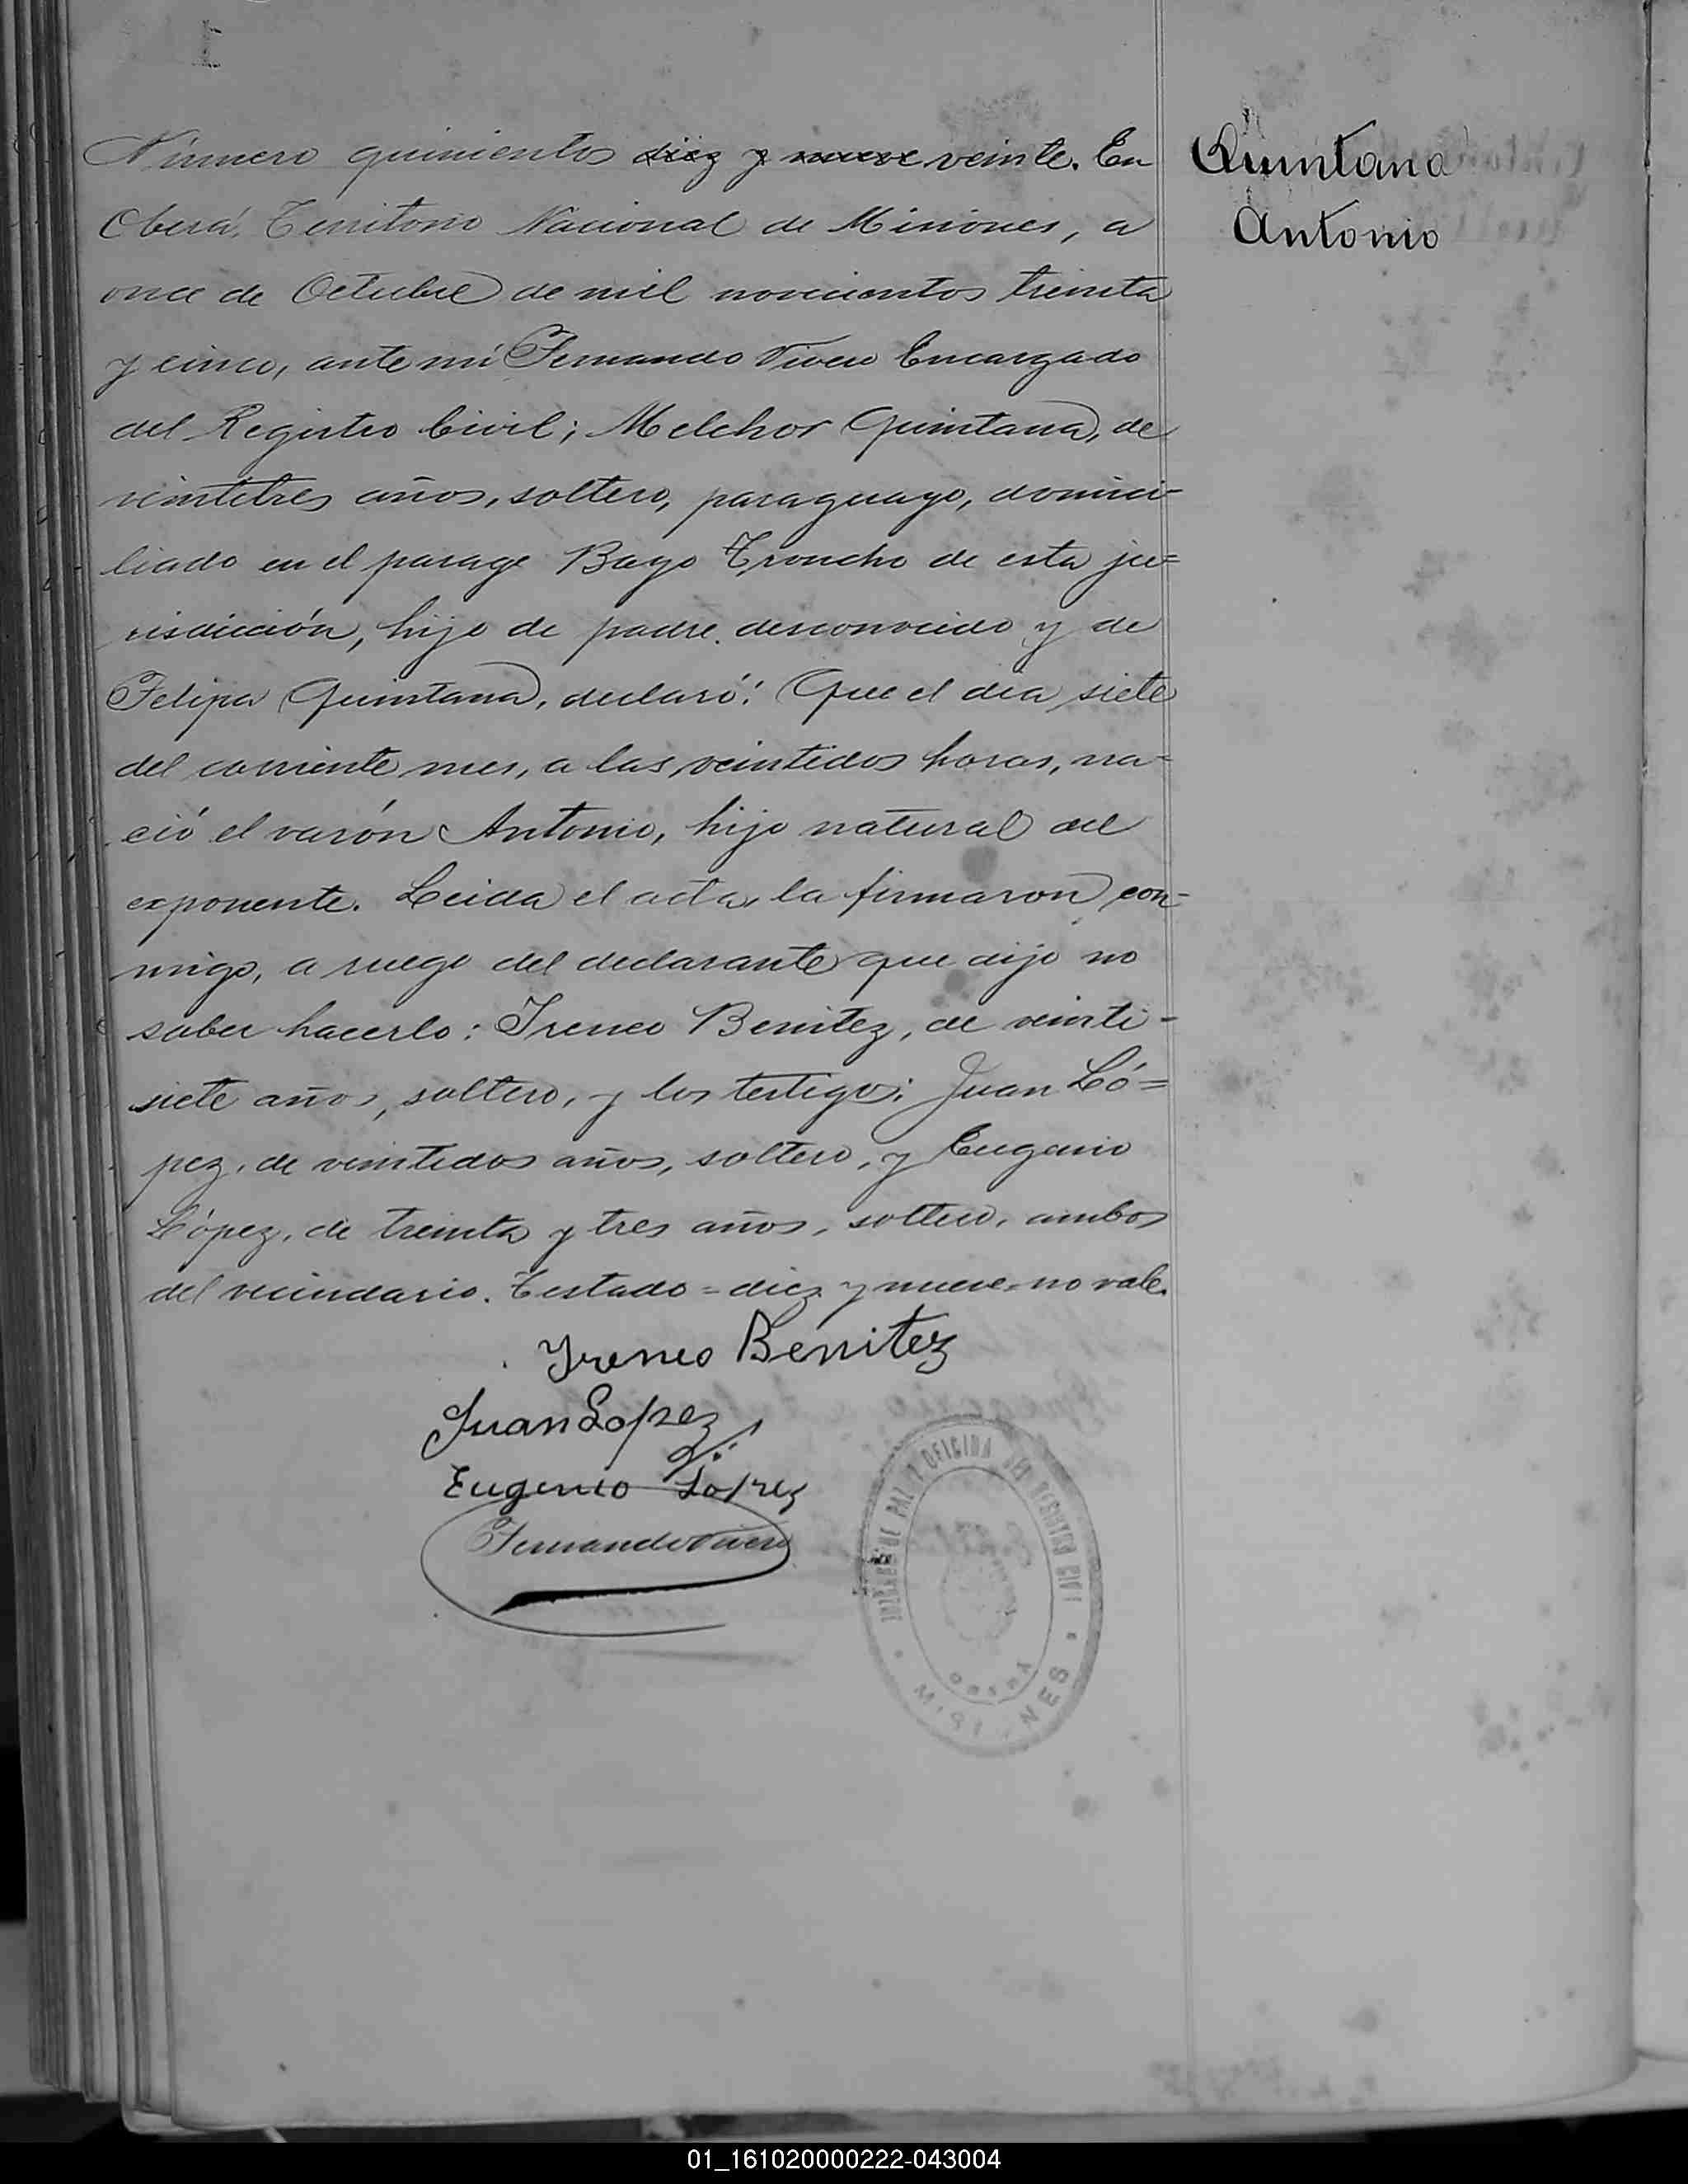 Número quinientos diez y nueve veinte. En
Oberá, Territorio Nacional de Misiones, a
once de Octubre de mil novecientos treinta
y cinco, ante mi Fernando Vivero Encargado
del Registro Civil; Melchor Quintana, de
veintitres años, soltero, paraguayo, domici-
liado en el parage Bayo Troncho de esta ju=
risdicción, hijo de padre desconocido y de
Felipa Quintana, declaró: Que el dia siete
del corriente mes, a las veintidos horas, na-
ció el varón Antonio, hijo natural del
exponente. Leida el acta, la firmaron con-
migo, a ruego del declarante que dijo no
saber hacerlo: Ireneo Benitez, de veinti-
siete años, soltero, y los testigos: Juan Ló=
pez, de veintidos años, soltero, y Eugenio
López, de treinta y tres años, soltero, ambos
del vecindario. Testado = diez y nueve = no vale.
Quintana
Antonio
Yreneo Benitez
Juan Lopez
Eugenio Lopez
Fernando Vivero
JUZGADO DE PAZ Y OFICINA DEL REGISTRO CIVIL
OBERÁ
MISIONES
01_161020000222-043004